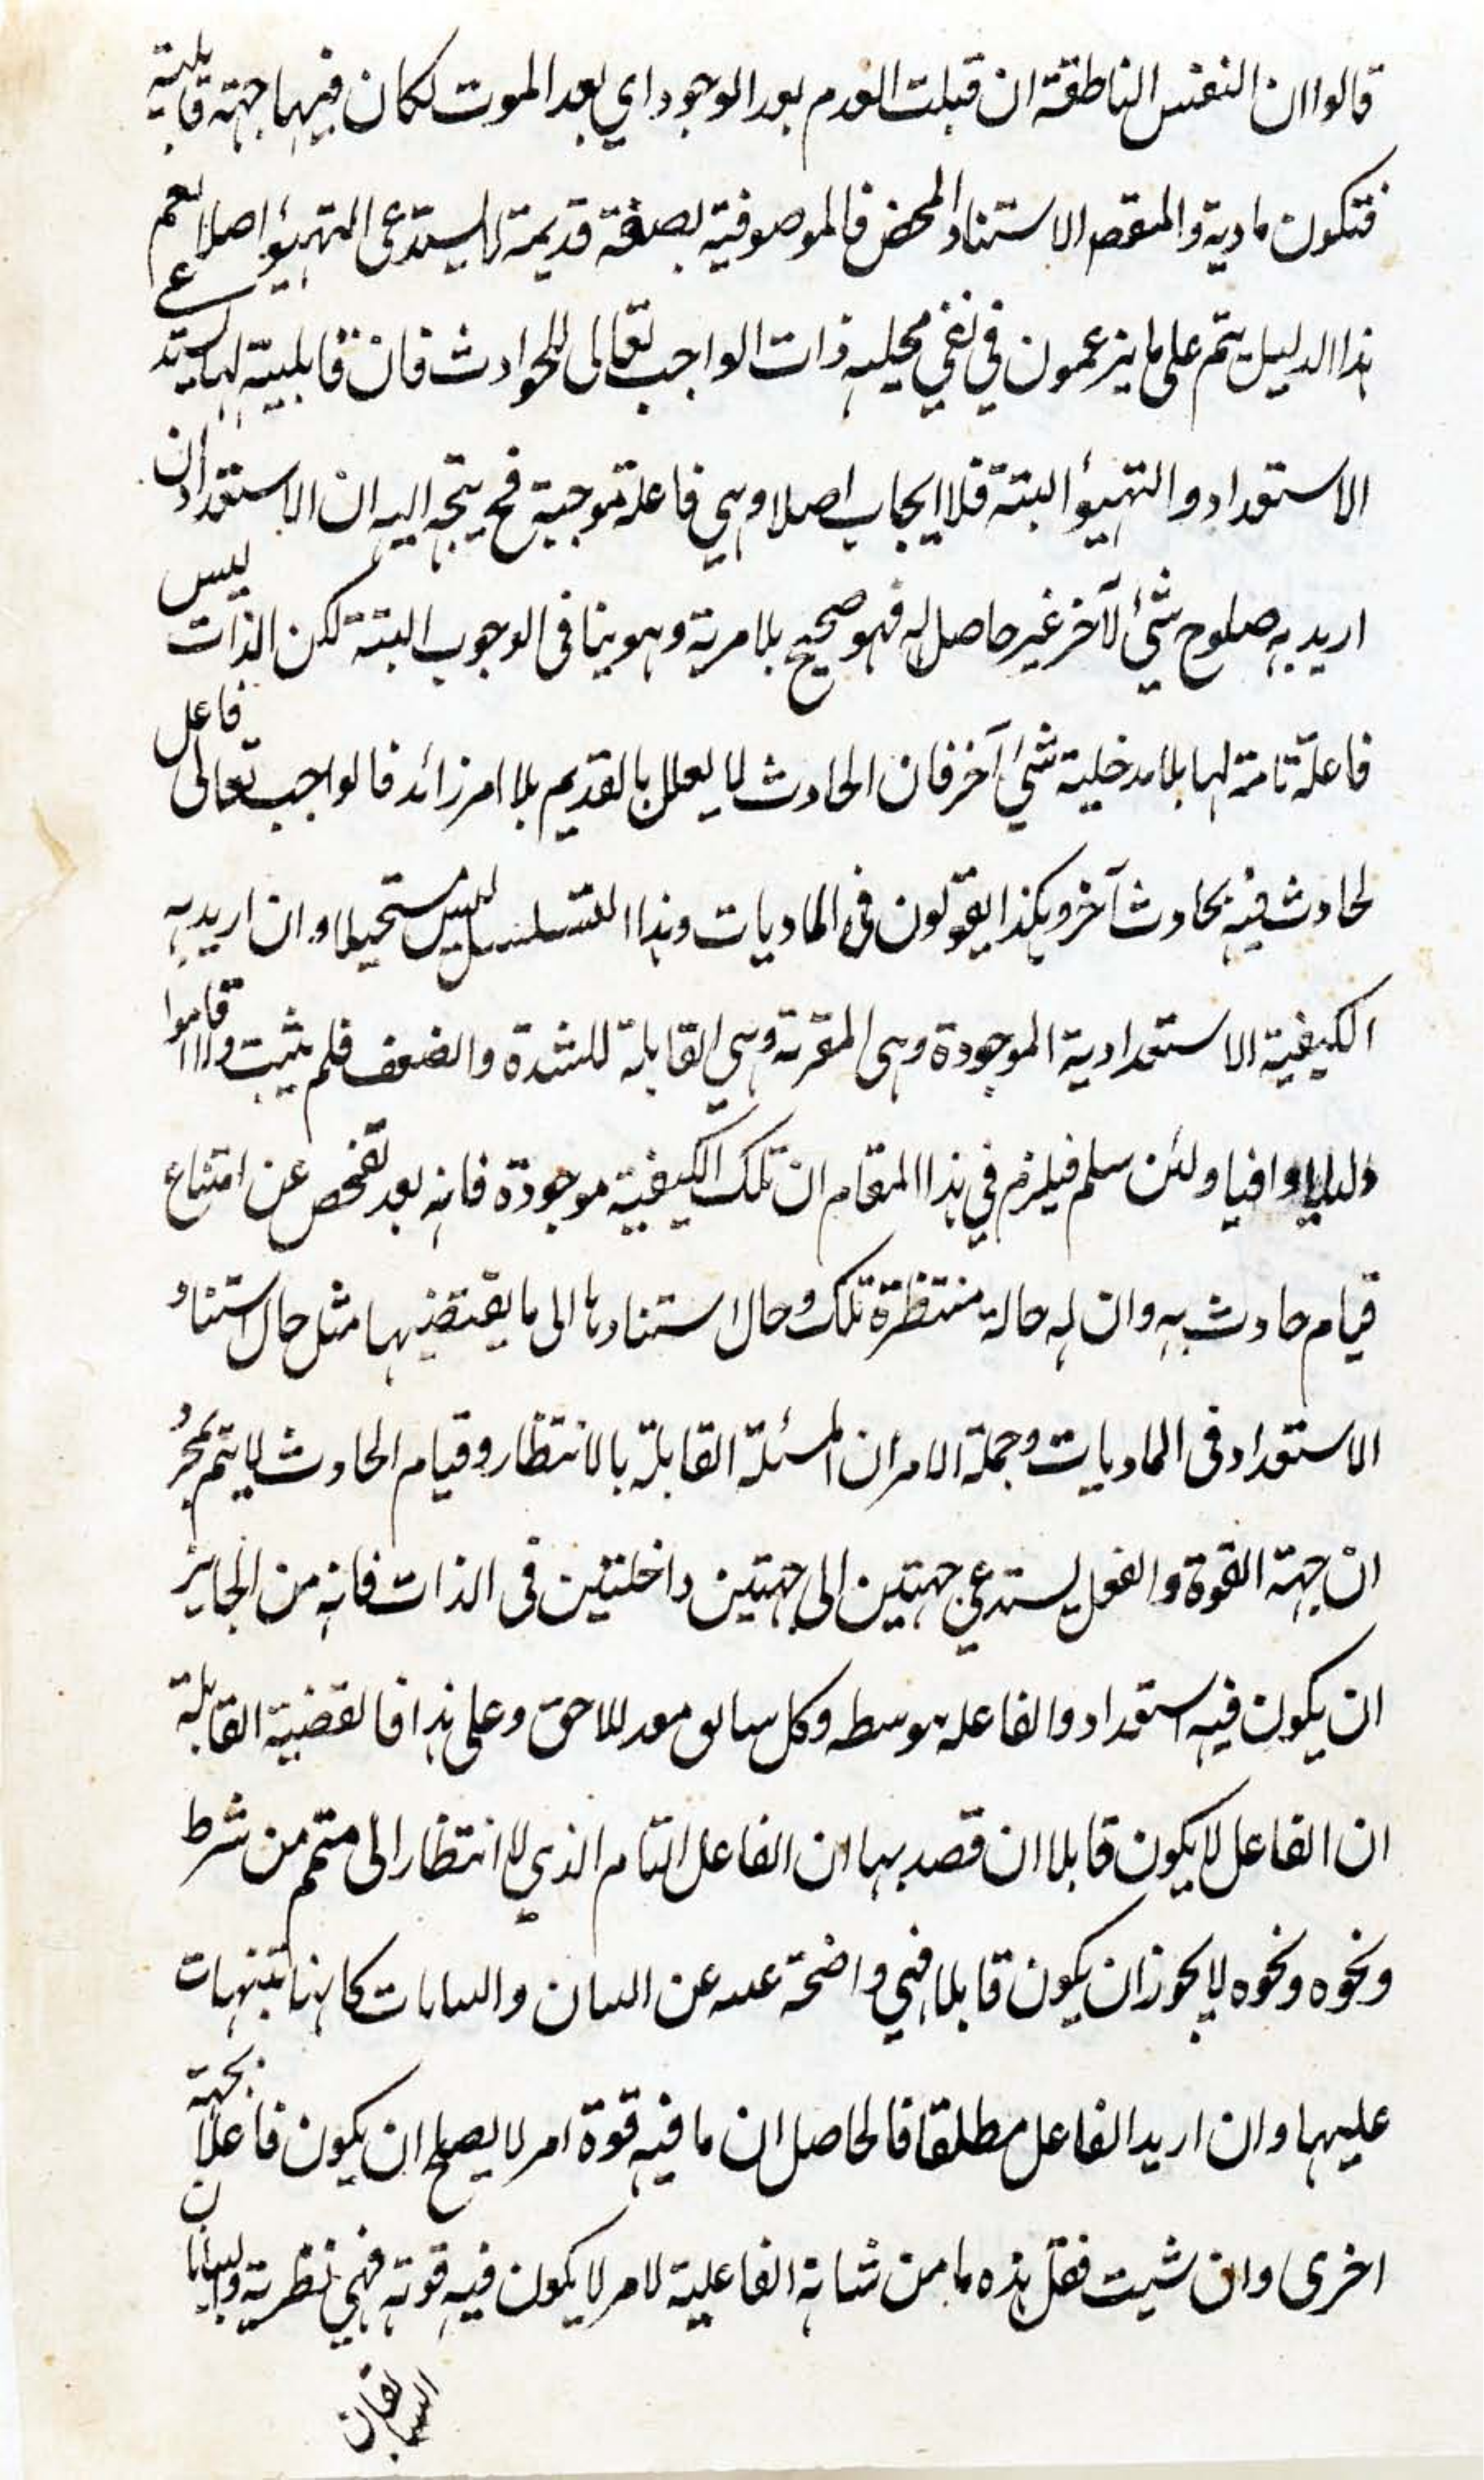 قالوا ان النفس الناطقة ان قبلت العدم بعد الوجود اي بعد الموت لكان فيها جهة قابلية
فتكون مادية والنقص الاستناد المحض فالموصوفية بصفة قديمة لا يستدعى التهيؤ اصلا نعم
هذا الدليل يتم على ما يزعمون في نفي محلية ذات الواجب تعالى للحوادث فان قابلية لها يستدعى
الاستعداد والتهيؤ البتة فلا ايجاب اصلا وهي فاعلة موجبة فح يتجه اليه ان الاستعداد ان
اريد به صلوح شئ لآخر غير حاصل له فهو صحيح بلا مرية وهو ينافى الوجوب البتة لكن الذات ليس
فاعلة تامة لها بلا مدخلية شئ آخر فان الحادث لا يعلل بالقديم بلا امر زائد فالواجب تعالى فاعل
لحادث فيه بحادث آخر وهكذا يقولون فى الماديات وهذا التسلسل ليس مستحيلا وان اريد به
الكيفية الاستعدادية الموجودة وهى المقربة وهي القابلة للشدة والضعف فلم يثبت وما اقاموا
دليلا وافيا ولئن سلم فيلزم في هذا المقام ان تلك الكيفية موجودة فانه بعد تفحص عن امتناع
قيام حادث به وان له حالة منتظرة تلك وحال استنادها الى ما يقتضيها مثل حال استناد
الاستعداد فى الماديات وجملة الامر ان المسئلة القابلة بالانتظار وقيام الحادث لا يتم بمجرد
ان جهة القوة والفعل يستدعي جهتين الى جهتين داخلتين فى الذات فانه من الجايز
ان يكون فيه استعداد والفاعلة بوسطه وكل سابق معد للاحق وعلى هذا فالقضية القابلة
ان الفاعل لا يكون قابلا ان قصد بها ان الفاعل التام الذي لا انتظار الى متمم من شرط
ونحوه ونحوه لا يجوز ان يكون قابلا فهي واضحة غنية عن البيان والبيانات كانها تنبيهات
عليها وان اريد الفاعل مطلقا فالحاصل ان ما فيه قوة امر لا يصلح ان يكون فاعلا بجهة
اخرى وان شيت فقل هذه ما من شانه الفاعلية لامر لا يكون فيه قوته فهي نظرية والبيانان
السابقان